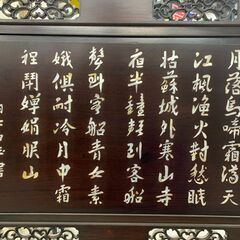 月落烏啼霜滿天
江楓漁火對愁眠
姑蘇城外寒山寺
夜半鐘聲到客船
船青女素
娥俱耐冷月中霜
裡鬪嬋娟眠山